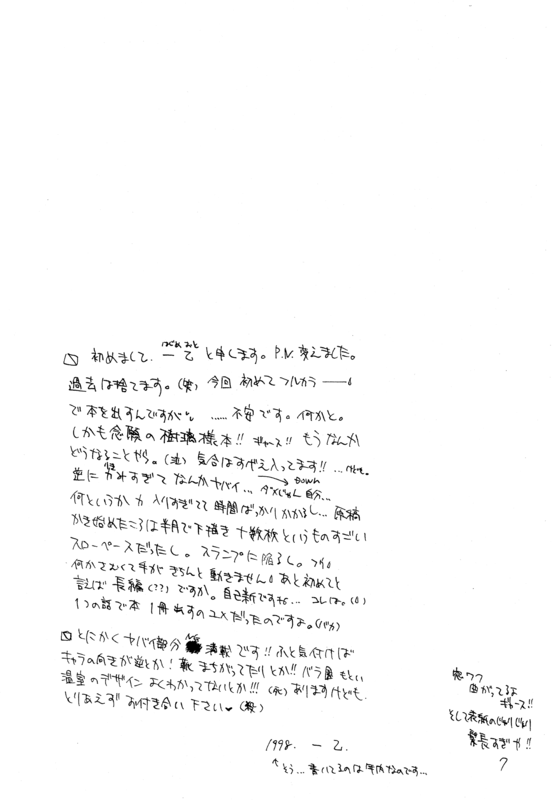 初めまして. 一 乙 と申します。P.N. 変えました。
過去は捨てます。(笑) 今回 初めて フルカラー
で本を出すんですが ...... 不安です。何かと。
しかも念願の樹璃様本!! ギャース!! もうなんか
どうなることやら。(泣) 気合は 入ってます!! ...
逆に すぎて なんかヤバイ... → DOWN 自分...
何というか 力 入りすぎてて 時間ばっかりかかるし... 原稿
かき始めたころは半月で下描き十数枚というものすごい
スローペースだったし。スランプに陥るし。
何かさむくて手が きちんと動きません。あと初めてと
言えば 長編(??) ですか。自己新ですね... コレは。
1つの話で本 1冊出すのユメだったのですよ。(バカ)
とにかく ヤバイ部分 満載です!! ふと気付けば
キャラの向きが逆とか! 靴 まちがってたりとか!! バラ園 もとい
温室のデザイン よくわかってないとか!!! (死) ありますけども.
とりあえず お付き合い下さい♥
1998. 一 乙.
↑そう... 書いてるのは 年内なのです...
窓ワク
曲がってるよ
ギャース!!
そして表紙のじゅりじゅり
髪長すぎや!!
7